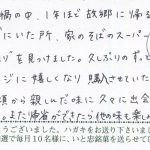 禍の中、1年ほど故郷に帰る
にいた所、家のそばのスーパー
を見つけました。久しぶりのず
ジに嬉しくなり購入させていた
頃から親しんだ味に久々に出会
。また帰省ができたら他の味も楽しみ
うございました。ハガキをお送り下さいまし
選で毎月10名様に、いと忠銘菓を送らせて